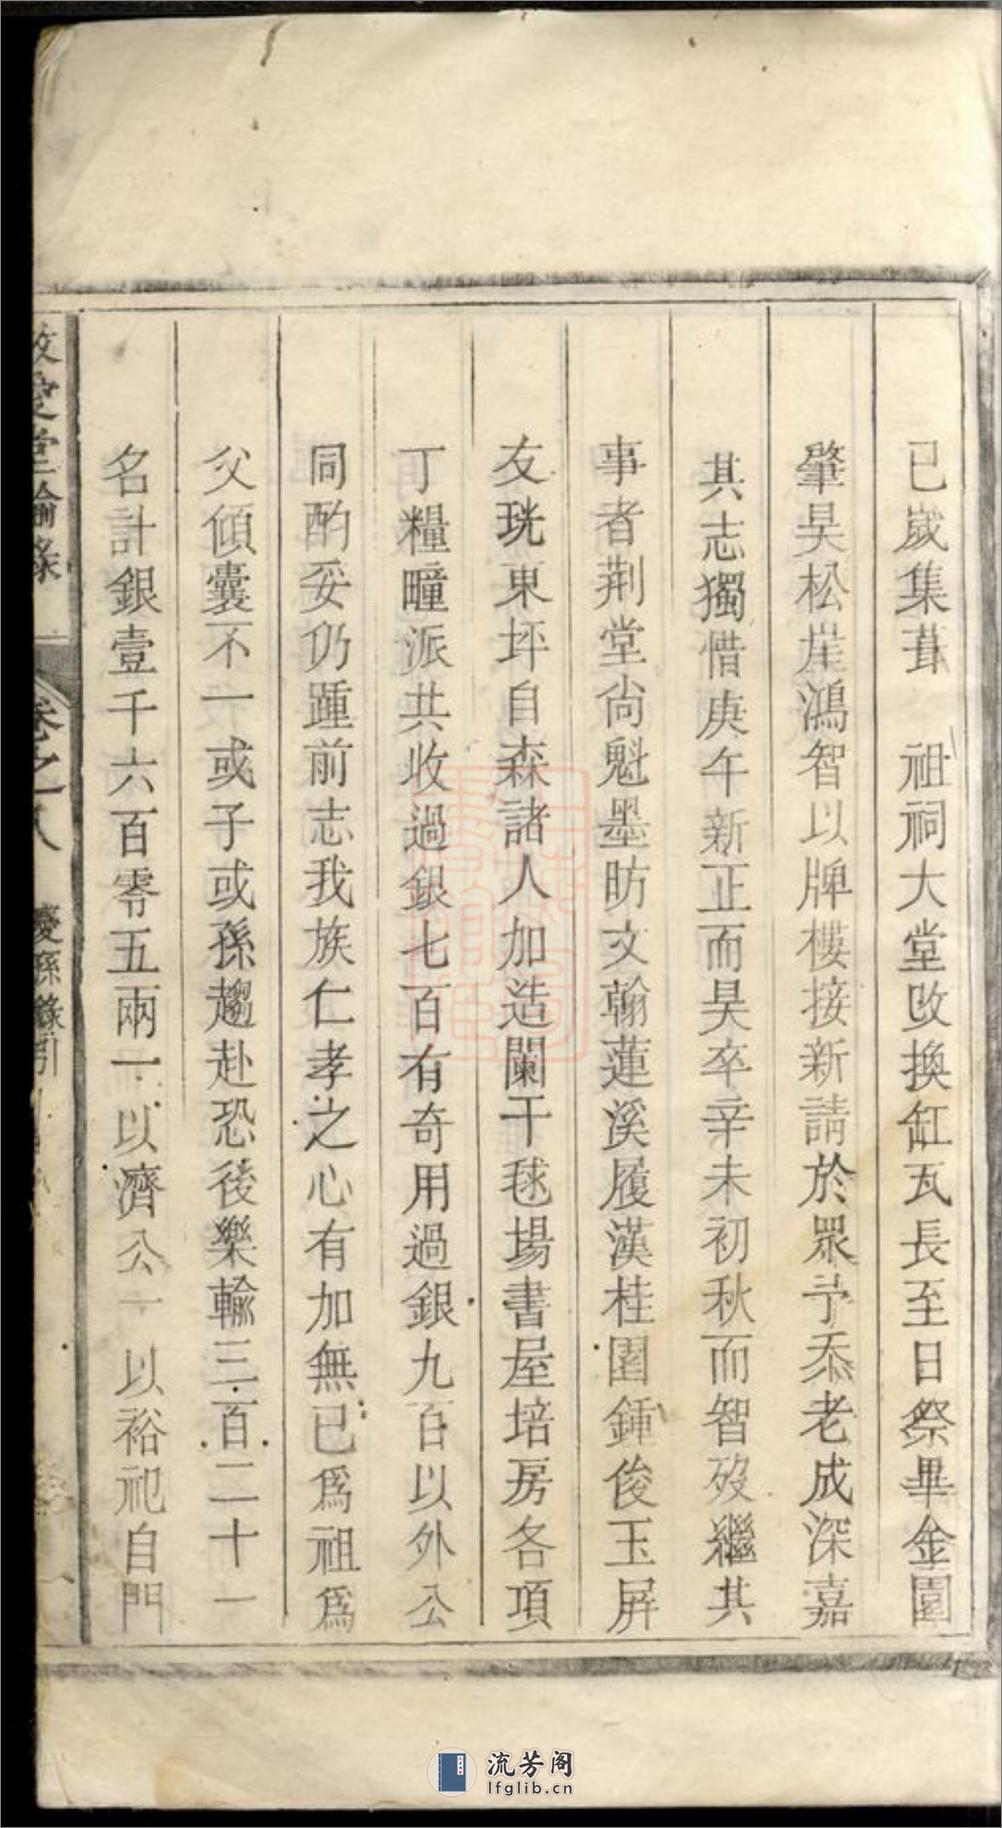 已歲集葺　祖祠大堂改換缸瓦長至日祭畢金園
肇昊松崖鴻智以牌樓接新請於眾予忝老成深嘉
其志獨惜庚午新正而昊卒辛未初秋而智歿繼其
事者荆堂尚魁墨昉文翰蓮溪履漢桂園鍾俊玉屏
友珖東坪自森諸人加造闌干毬場書屋培房各項
丁糧疃派共收過銀七百有奇用過銀九百以外公
同酌妥仍踵前志我族仁孝之心有加無已爲祖爲
父傾囊不一或子或孫趨赴恐後樂輸三百二十一
名計銀壹千六百零五兩一以濟公一以裕祀自門
愛堂諭錄　卷之八　慶孫錄引
流芳阁
lfglib.cn